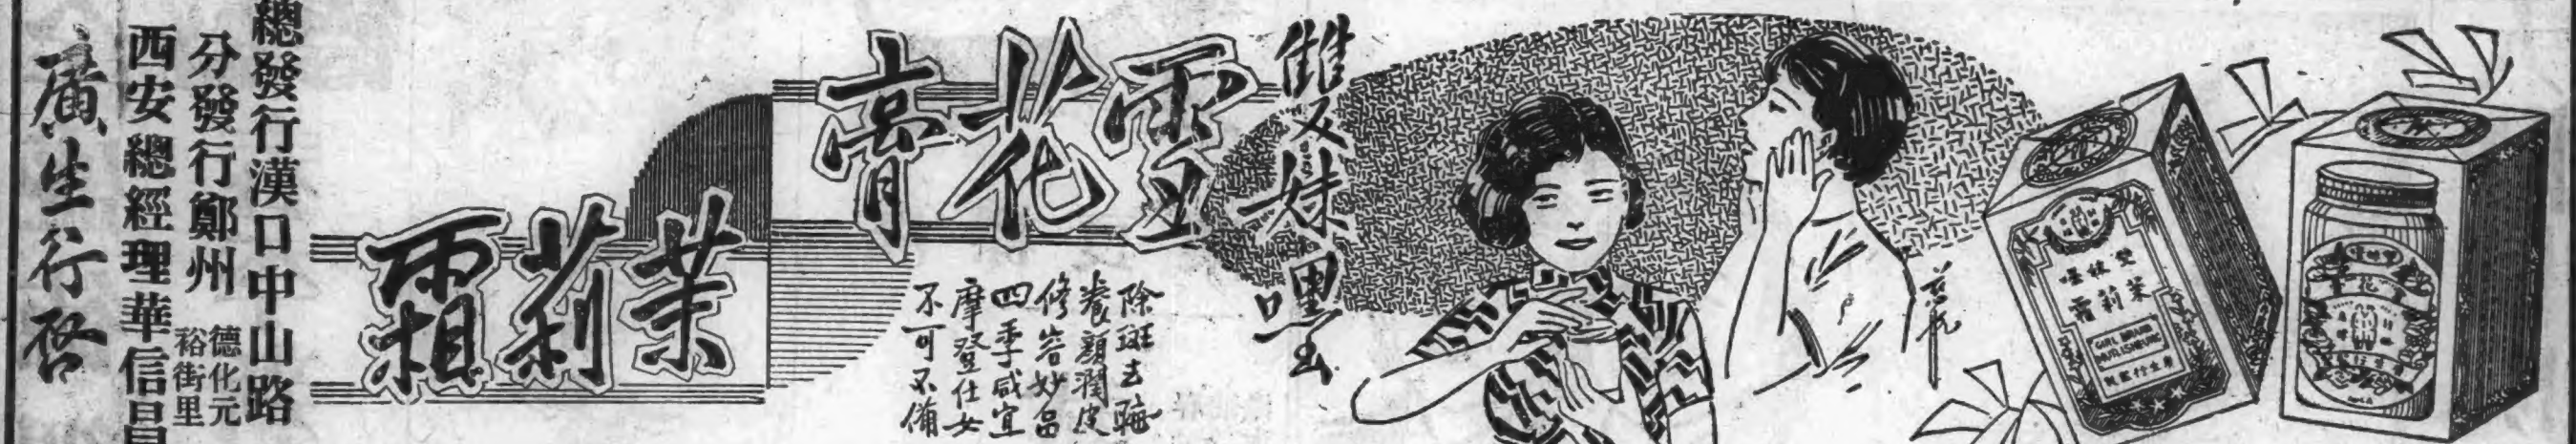 雙妹嘜
雪花膏
茉莉霜
除斑去
養顏潤皮
修容妙品
四季咸宜
摩登仕女
不可不備
雙妹嘜
茉莉霜
GIRL BRAND
廣生行監製
總發行漢口中山路
分發行鄭州德化街元裕里
西安總經理華信昌
廣生行啓